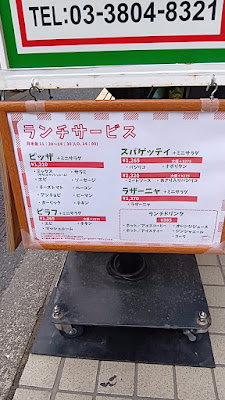 TEL:03-3804-8321
ランチサービス
ピッザ +ミニサラダ
¥1,320
・ミックス
・サラミ
・エビ
・ソーセージ
・チーズトマト
・ベーコン
・アンチョビ
・ビーマン
・ガーリック
・チキン
ピラフ +ミニサラダ
・エビ
・チキン
・マッシュルーム
スパゲッティ +ミニサラダ
¥1,265
・バジリコ
・ナポリタン
¥1,320
・ミートソース
ラザーニャ +ミニサラダ
¥1,370
・ラザーニャ
ランチドリンク
・ホット/アイスコーヒー
・オレンジジュース
・ホット/アイスティー
・ジンジャエール
・コーラ